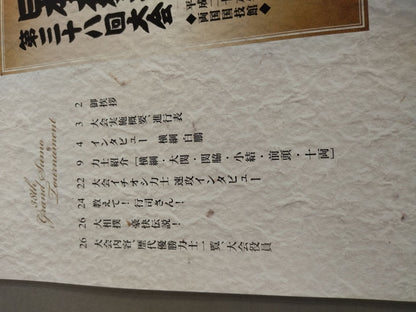 第三十八回大会
平成
両国国技館
38th
Grand Sumo
Tournament
2 御挨拶
3 大会実施概要、進行表
4 インタビュー 横綱 白鵬
9 力士紹介［横綱・大関・関脇・小結・前頭・十両］
22 大会イチオシ力士 速攻インタビュー
24 教えて！行司さん！
26 大相撲 豪快伝説！
26 大会内容、歴代優勝力士一覧、大会役員